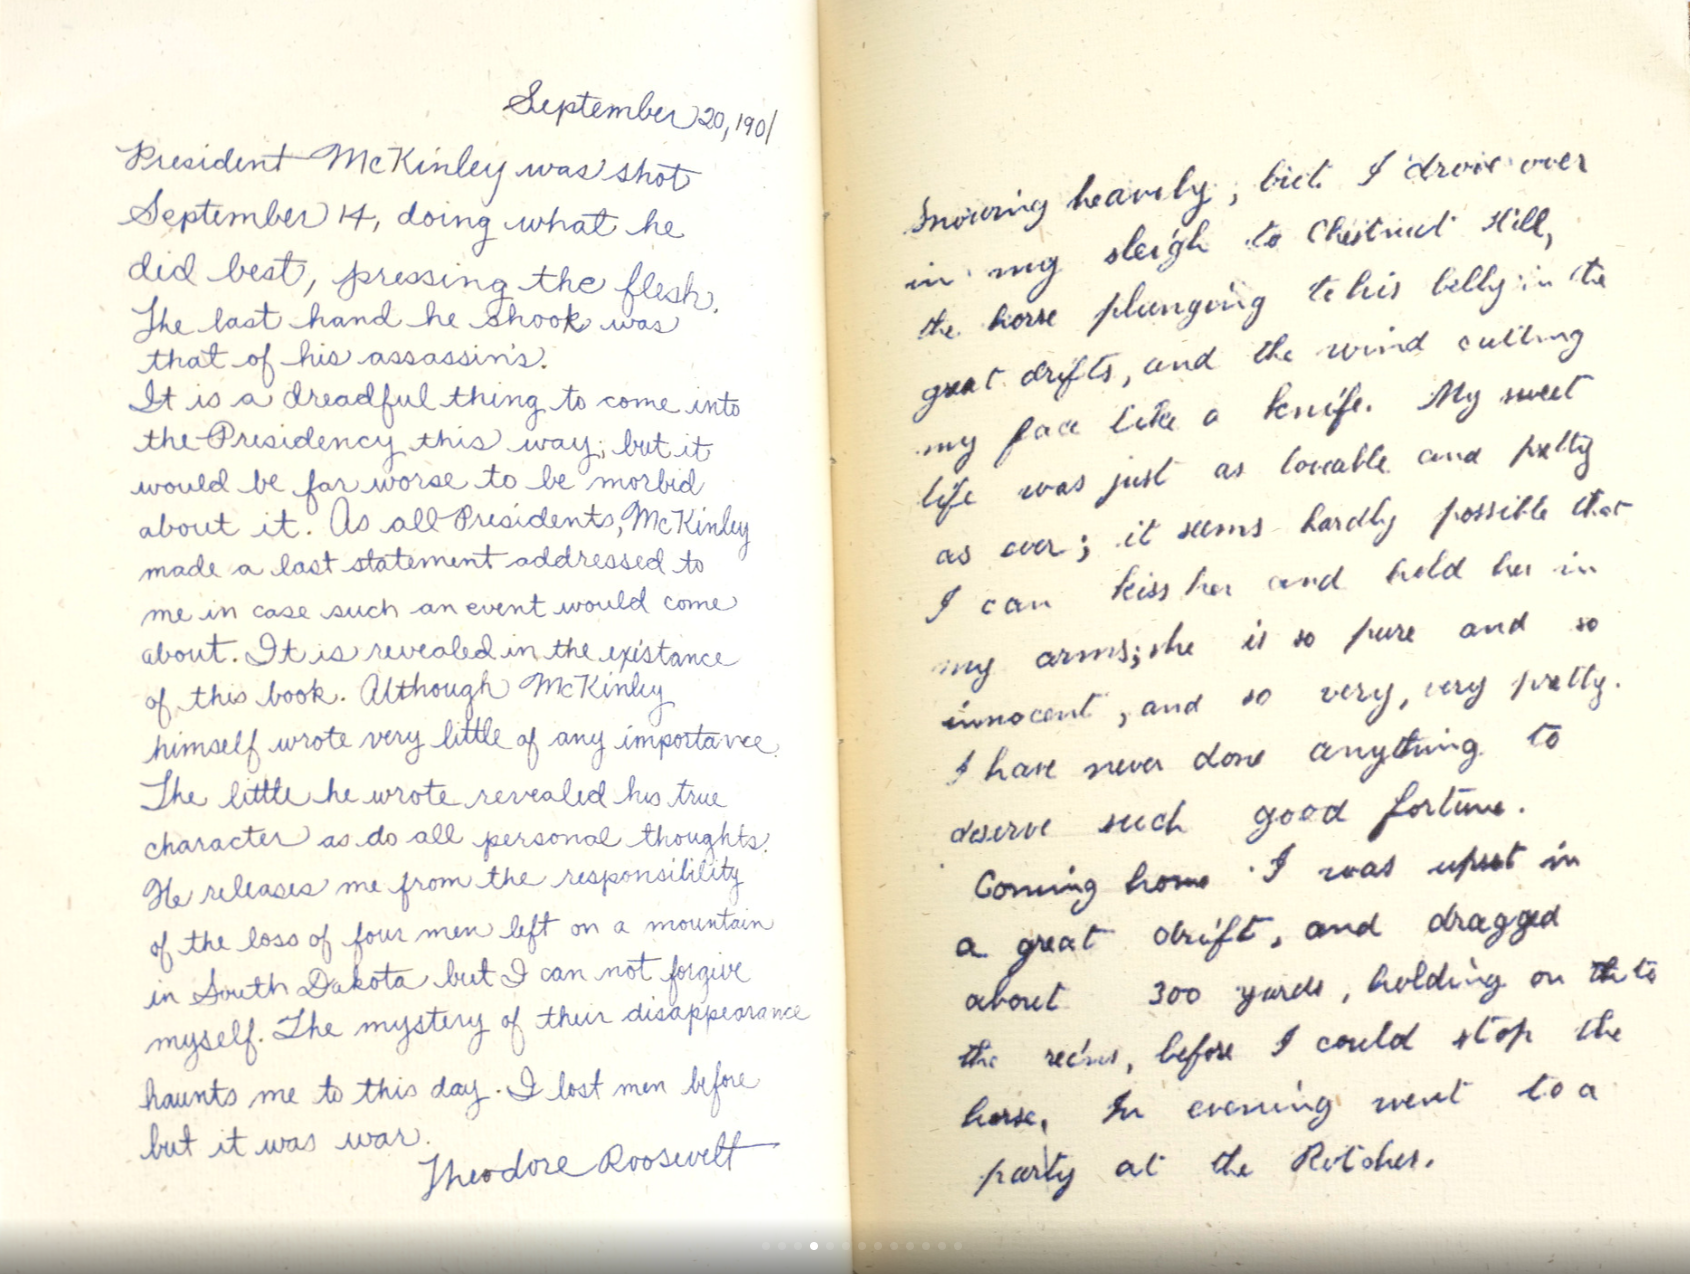 September 20, 1901
President McKinley was shot
September 14, doing what he
did best, pressing the flesh.
The last hand he shook was
that of his assassin's.
It is a dreadful thing to come into
the Presidency this way; but it
would be far worse to be morbid
about it. As all Presidents, McKinley
made a last statement addressed to
me in case such an event would come
about. It is revealed in the existance
of this book. Although McKinley
himself wrote very little of any importance.
The little he wrote revealed his true
character as do all personal thoughts.
He releases me from the responsibility
of the loss of four men left on a mountain
in South Dakota but I can not forgive
myself. The mystery of their disappearance
haunts me to this day. I lost men before
but it was war.
Theodore Roosevelt
Snowing heavily, but I drove over
in my sleigh to Chestnut Hill,
the horse plunging to his belly in the
great drifts, and the wind cutting
my face like a knife. My sweet
life was just as lovable and pretty
as ever; it seems hardly possible that
I can kiss her and hold her in
my arms; she is so pure and so
innocent, and so very, very pretty.
I have never done anything to
deserve such good fortune.
Coming home I was upset in
a great drift, and dragged
about 300 yards, holding on to
the reins, before I could stop the
horse. In evening went to a
party at the Rotches.